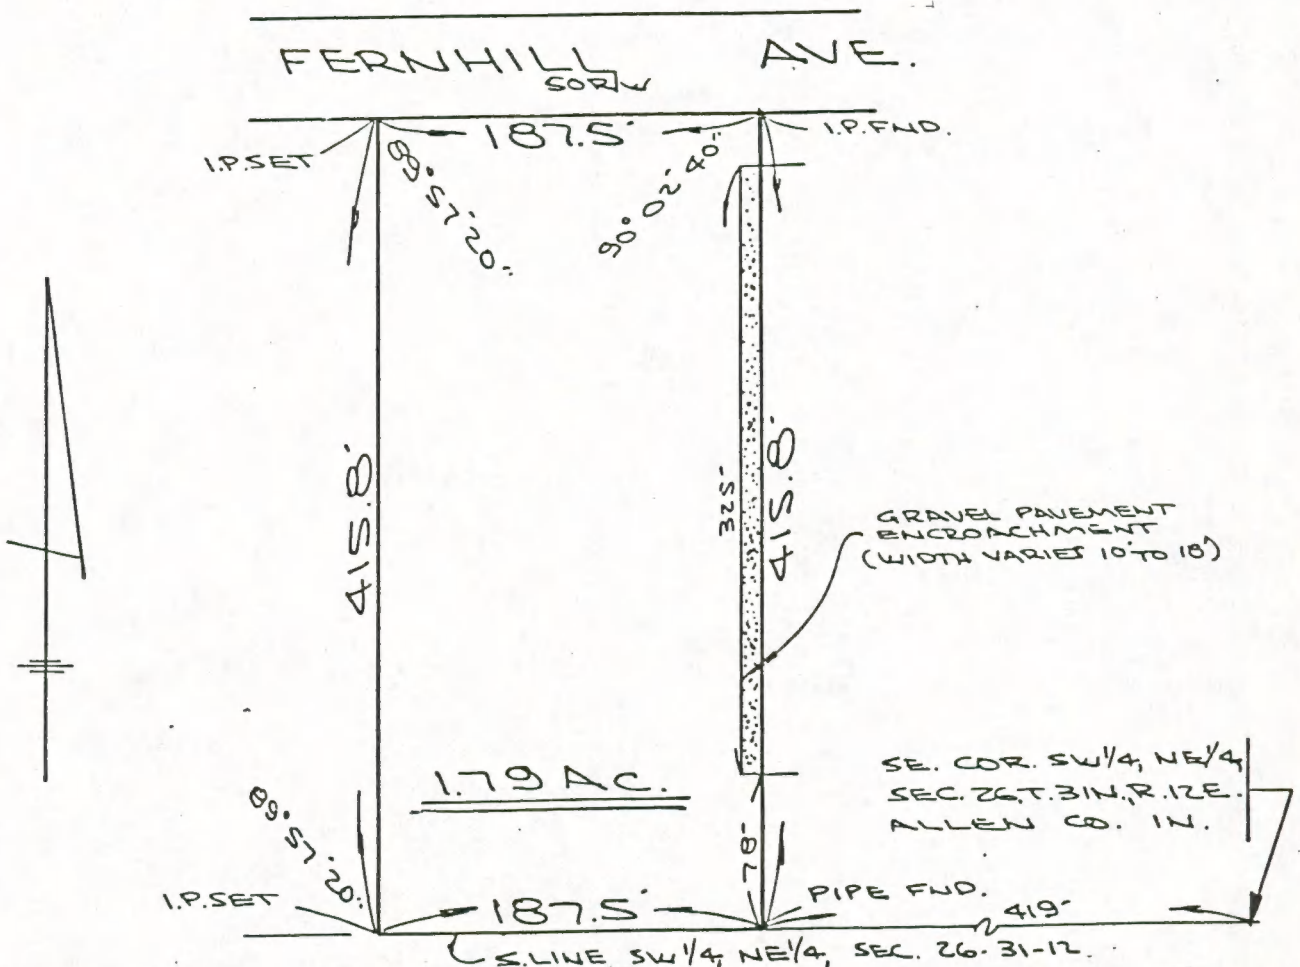 FERNHILL AVE.
SORW
187.5'
I.P. SET
I.P. FND.
89°57'20"
90°02'40"
415.8'
325'
415.8'
GRAVEL PAVEMENT
ENCROACHMENT
(WIDTH VARIES 10' TO 18')
1.79 AC.
SE. COR. SW 1/4, NE 1/4,
SEC. 26, T. 31N., R. 12E.
ALLEN CO. IN.
89°57'20"
78'
I.P. SET
187.5'
PIPE FND.
419'
S. LINE SW 1/4, NE 1/4, SEC. 26-31-12